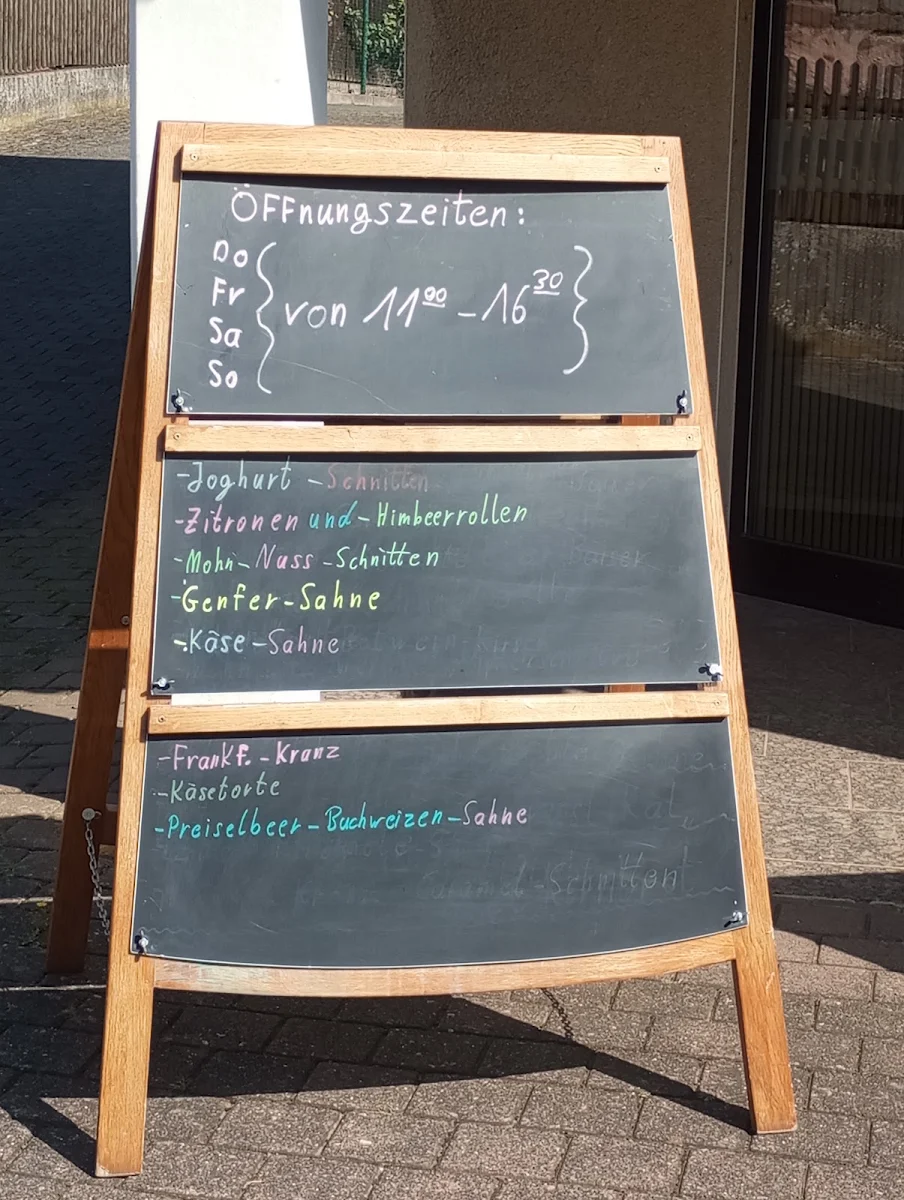 Öffnungszeiten:
Do
Fr
Sa
So
von 11⁰⁰ - 16³⁰
- Joghurt - Schnitten
- Zitronen und - Himbeerrollen
- Mohn - Nuss - Schnitten
- Genfer - Sahne
- Käse - Sahne
- Frankf. - Kranz
- Käsetorte
- Preiselbeer - Buchweizen - Sahne